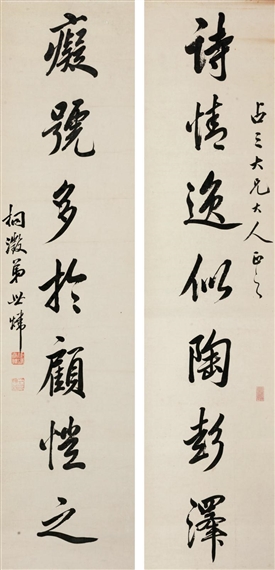 占三大兄大人正之
詩情逸似陶彭澤
癡號多於顧愷之
桐澂弟世煒